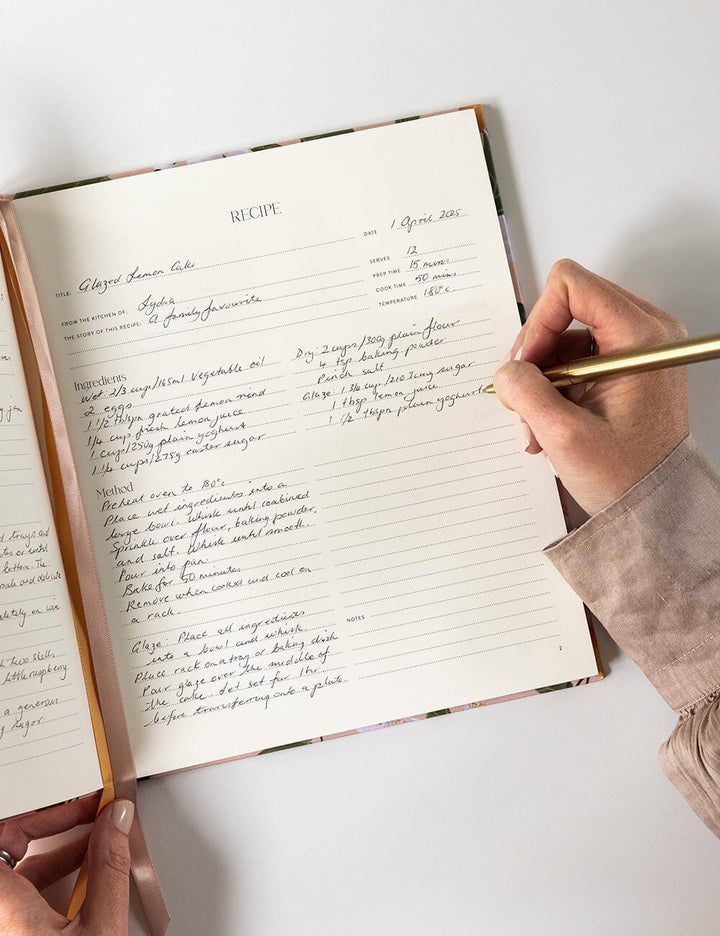 RECIPE
DATE 1 April 2025
TITLE: Glazed Lemon Cake
SERVES 12
PREP TIME 15 mins
COOK TIME 50 min
TEMPERATURE 180°c.
FROM THE KITCHEN OF: Lydia
THE STORY OF THIS RECIPE: A family favourite
Ingredients
Wet: 2/3 cup/165ml Vegetable oil
2 eggs
1 1/2 tblspn grated lemon rind
1/4 cup fresh lemon juice
1 cup/250g plain yoghurt
1 1/4 cups/275g caster sugar
Dry: 2 cups/300g plain flour
4 tsp baking powder
Pinch salt
Glaze: 1 3/4 cup/210 Icing sugar
1 tbsp lemon juice
1 1/2 tbspn plain yoghurt
Method
Preheat oven to 180°c
Place wet ingredients into a
large bowl. Whisk until combined
Sprinkle over flour, baking powder,
and salt. Whisk until smooth.
Pour into pan.
Bake for 50 minutes
Remove when cooked and cool on
a rack.
Glaze: Place all ingredients
into a bowl and whisk.
Place rack on a tray or baking dish
Pour glaze over the middle of
the cake. Let set for 1hr
before transferring onto a plate.
NOTES
2
trays and
or until
bottom. The
and delicate
on wire
two shells
little raspberry
a generous
sugar